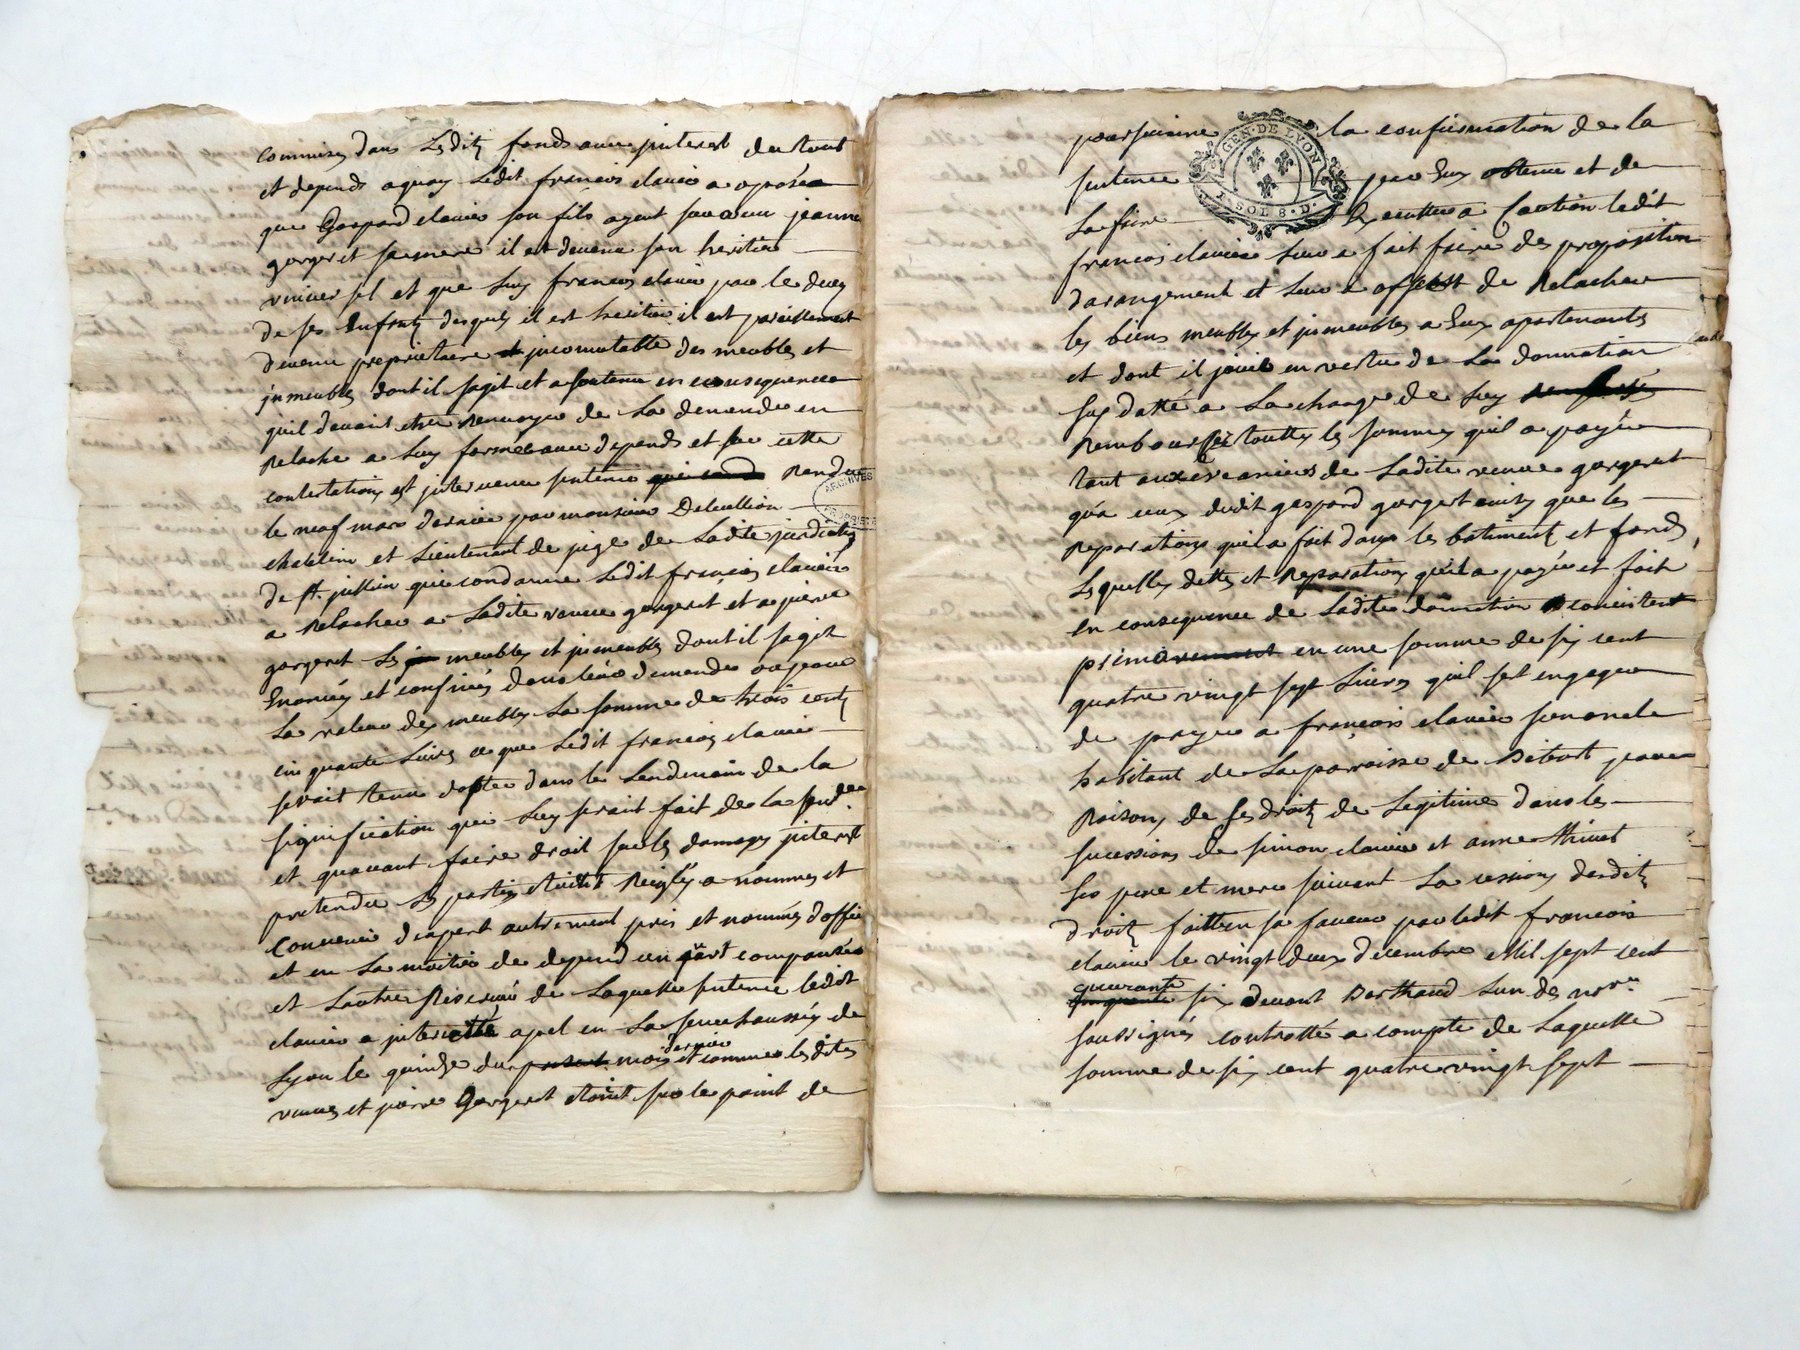 commises dans Lesditz fonds avec jnterest du tout
et depends a quoy Ledit françois claviere a oposé
que Gaspard claviere son fils ayant survecu jeanne
gorgeret sa mere il est devenu son heritier
universel et que Luy francois claviere par le decez
de ses Enfantz desquels il est heritier il est pareillement
devenu proprietaire jncomutable des meubles et
jmmeubles dont il sagit et a soutenu en consequence
quil devoit etre renvoyé de La demande en
Relache a Luy formée avec depends et sur cette
contestations est jntervenu sentence Rendue
le neuf mars dernier par monsieur
chatelain et Lieutenant de juge de Ladite juridiction
de st. jullien qui condamne Ledit françois claviere
a Relacher a Ladite veuve gorgeret et a pierre
gorgeret Les meubles et jmmeubles dont il sagit
Enoncés et confinés dans leur demande ou payer
La valeur des meubles La somme de trois cent
cinquante Livres ce que Ledit francois claviere
seroit tenu dopter dans le Lendemain de la
signification qui Luy seroit fait de La sentence
et quavant faire droit sur les domages jnterest
pretendu Les parties etoient Reiglés a nommer et
convenir dexpert autrement pris et nommés doffice
et en La moitié de depend un quart compensée
et Lautre Reservé de Laquelle sentence ledit
claviere a jnterietté apel en La senechaussée de
Lyon le quinze du present mois dernier et comme lesdites
veuve et pierre Gorgeret etoient sur le point de
poursuivre la confirmation de la
sentence par Eux obtenue et de
La faire Executter a Caution ledit
francois claviere Leur a fait faire des proposition
darangement et Leur a offert de Relacher
les biens meubles et jmmeubles a Eux apartenants
et dont il jouit en vertu de La donnation
sus datté a La charge de Luy
Rembourser touttes les sommes quil a payée
tant aux creanciers de Ladite veuve gorgeret
qua ceux dudit gaspard gorgeret ainsy que les
Reparations quil a fait dans les batimentz et fonds
Lesquelles dettes et Reparations quil a payée et fait
En consequence de Ladite donnation concistent
premierement en une somme de six cent
quatre vingt sept Livres quil sest engagée
de payer a françois claviere son oncle
habitant de La parroisse de pour
Raisons de ses droitz de Legitime dans les
sucessions de simon claviere et anne thivet
ses pere et mere suivant La cessions desditz
droitz faitte en sa faveur par ledit francois
claviere le vingt deux decembre Mil sept cent
quarante cinquante six devant Berthaud Lun des nores
soussignés controllé a compte de Laquelle
somme de six cent quatre vingt sept
GEN · DE LYON
SOL 8 · D ·
ARCHIVES